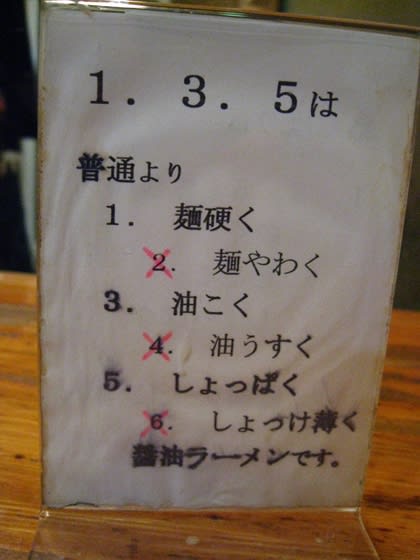 １．３．５は
普通より
１．麺硬く
２．麺やわく
３．油こく
４．油うすく
５．しょっぱく
６．しょっけ薄く
醤油ラーメンです。